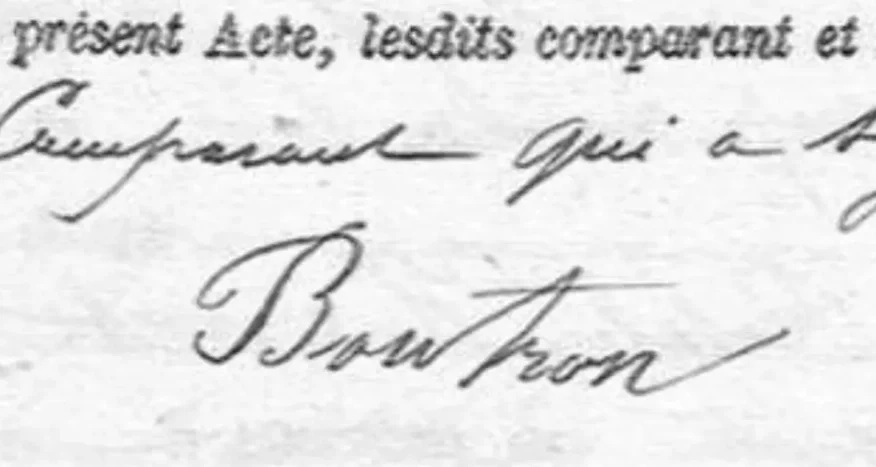 présent Acte, lesdits comparant et
Comparant qui a
Boutron